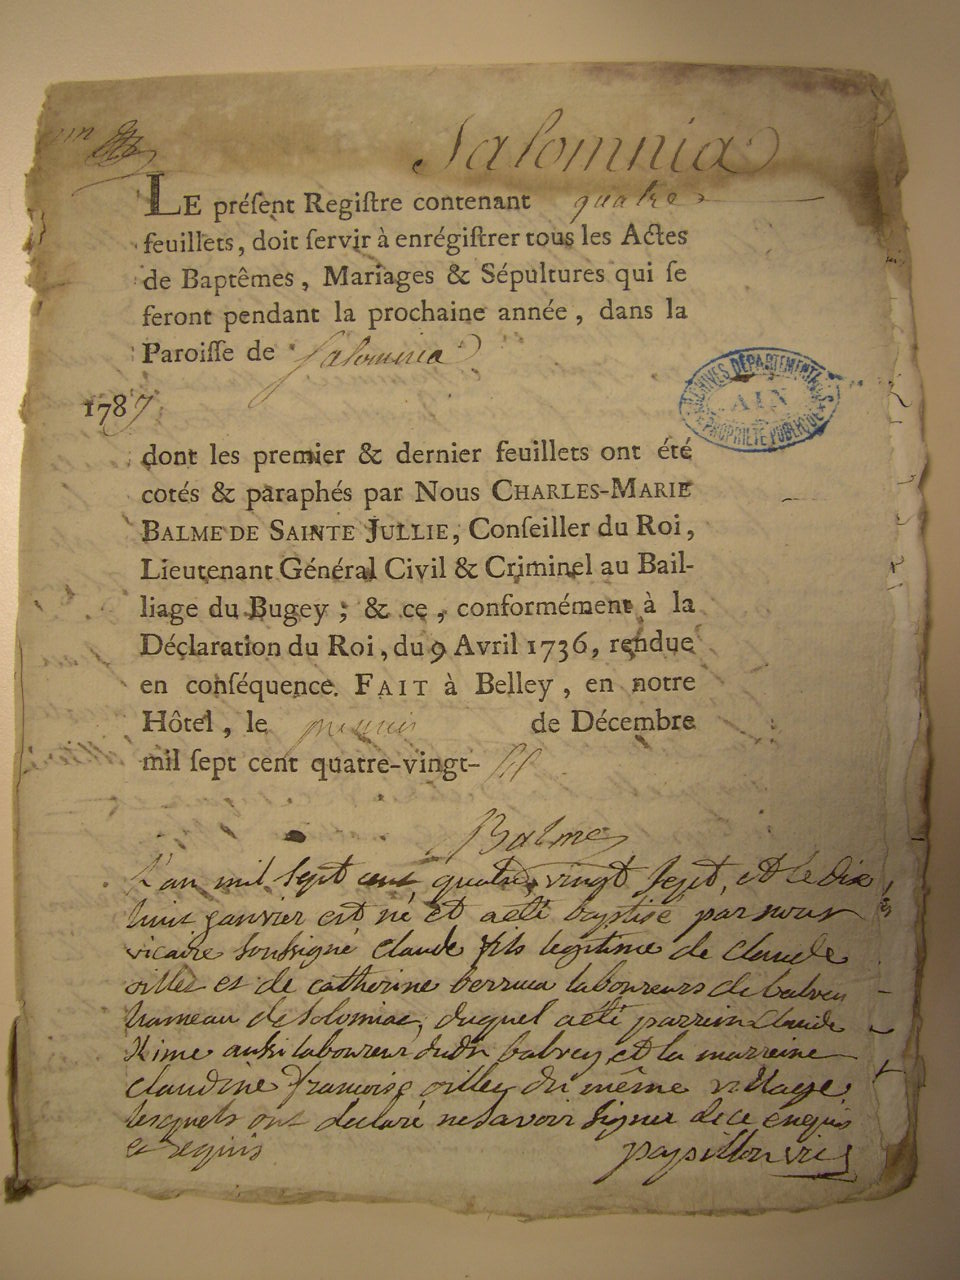 Salomnia
LE préſent Regiſtre contenant quatre
feuillets, doit ſervir à enrégiſtrer tous les Actes
de Baptêmes, Mariages & Sépultures qui ſe
feront pendant la prochaine année, dans la
Paroiſſe de Salomnia
1787
ARCHIVES DÉPARTEMENTALES
AIN
PROPRIÉTÉ PUBLIQUE
dont les premier & dernier feuillets ont été
cotés & paraphés par Nous CHARLES-MARIE
BALME DE SAINTE JULLIE, Conſeiller du Roi,
Lieutenant Général Civil & Criminel au Bail-
liage du Bugey ; & ce, conformément à la
Déclaration du Roi, du 9 Avril 1736, rendue
en conſéquence. FAIT à Belley, en notre
Hôtel, le premier de Décembre
mil ſept cent quatre-vingt-
Balme
L'an mil Sept cent quatre vingt Sept, et Le dix
huit janvier est né et a été baptisé par nous
vicaire Soussigné claude fils legitime de claude
et de catherine laboureurs de
hameau de Solomiac, duquel a été parrein claude
aussi laboureur dudt et la marreine
claudine françoise du même village,
lesquels ont déclaré ne Savoir Signer de ce enquis
et requis papillon vic